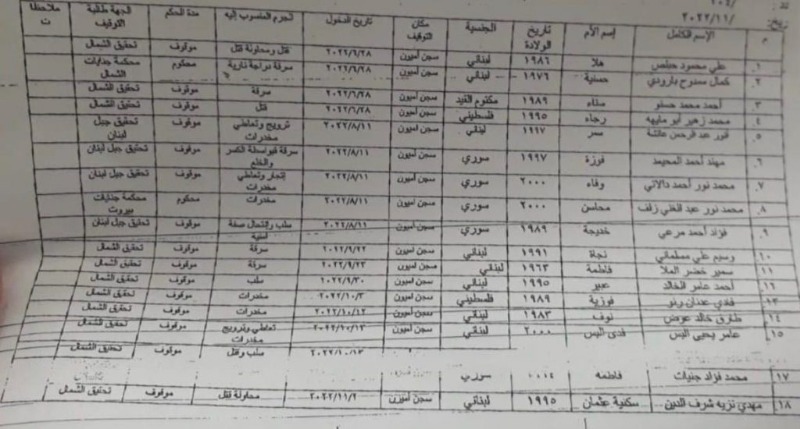 تاريخ: /٢٠٢٢/١١
م الإسم الكامل إسم الأم تاريخ الولادة الجنسية مكان التوقيف تاريخ الدخول الجرم المنسوب إليه مدة الحكم الجهة طالبة التوقيف ملاحظات
١. علي محمود حلبص هلا ١٩٨٦ لبناني سجن أميون ٢٠٢٢/٦/٢٨ قتل ومحاولة قتل موقوف تحقيق الشمال
٢. كمال ممدوح بارودي حسنية ١٩٧٦ لبناني سجن أميون ٢٠٢٢/٦/٢٨ سرقة دراجة نارية محكوم محكمة جنايات الشمال
٣ أحمد محمد حسنو ١٩٨٩ مكتوم القيد سجن أميون ٢٠٢٢/٦/٢٨ سرقة موقوف تحقيق الشمال
٤. محمد زهير أبو رجاء ١٩٩٥ فلسطيني سجن أميون ٢٠٢٢/٦/٢٨ قتل موقوف تحقيق الشمال
٥. عبد الرحمن عائشة سمر ١٩٩٧ لبناني سجن أميون ٢٠٢٢/٨/١١ ترويج وتعاطي مخدرات موقوف تحقيق جبل لبنان
٦. مهند أحمد المحيمد فوزة ١٩٩٧ سوري سجن أميون ٢٠٢٢/٨/١١ سرقة بواسطة الكسر والخلع موقوف تحقيق جبل لبنان
٧. محمد نور أحمد دالاتي وفاء ٢٠٠٠ سوري سجن أميون ٢٠٢٢/٨/١١ إتجار وتعاطي مخدرات موقوف تحقيق جبل لبنان
٨. محمد نور عبد الغني زلف محاسن ٢٠٠٠ سوري سجن أميون ٢٠٢٢/٨/١١ مخدرات محكوم محكمة جنايات بيروت
٩. فؤاد أحمد مرعي خديجة ١٩٨٩ سوري سجن أميون ٢٠٢٢/٨/١١ سلب وإنتحال صفة أمنية موقوف تحقيق جبل لبنان
١٠. وسيم علي مسلماني نجاة ١٩٩١ لبناني سجن أميون ٢٠٢٢/٩/٢٢ سرقة موقوف تحقيق الشمال
١١. سمير خضر الملا فاطمة ١٩٦٣ لبناني سجن أميون ٢٠٢٢/٩/٢٣ سرقة موقوف تحقيق الشمال
أحمد عامر الخالد عبير ١٩٩٥ لبناني سجن أميون ٢٠٢٢/٩/٣٠ سلب موقوف تحقيق الشمال
١٣. فادي عدنان فوزية ١٩٨٩ فلسطيني سجن أميون ٢٠٢٢/١٠/٣ مخدرات موقوف تحقيق الشمال
١٤. طارق خالد عوض نوف ١٩٨٣ لبناني سجن أميون ٢٠٢٢/١٠/١٢ مخدرات موقوف تحقيق الشمال
١٥ عامر يحيى البس فدى البس ٢٠٠٠ لبناني سجن أميون ٢٠٢٢/١٠/١٣ تعاطي وترويج مخدرات موقوف تحقيق الشمال
سجن أميون ٢٠٢٢/١٠/١٣ سلب وقتل موقوف تحقيق الشمال
١٧ محمد فؤاد جنيات فاطمه ٢٠٠٤ سوري
١٨. مهدي نزيه شرف الدين سكنية عثمان ١٩٩٥ لبناني سجن أميون ٢٠٢٢/١١/٢ محاولة قتل موقوف تحقيق الشمال